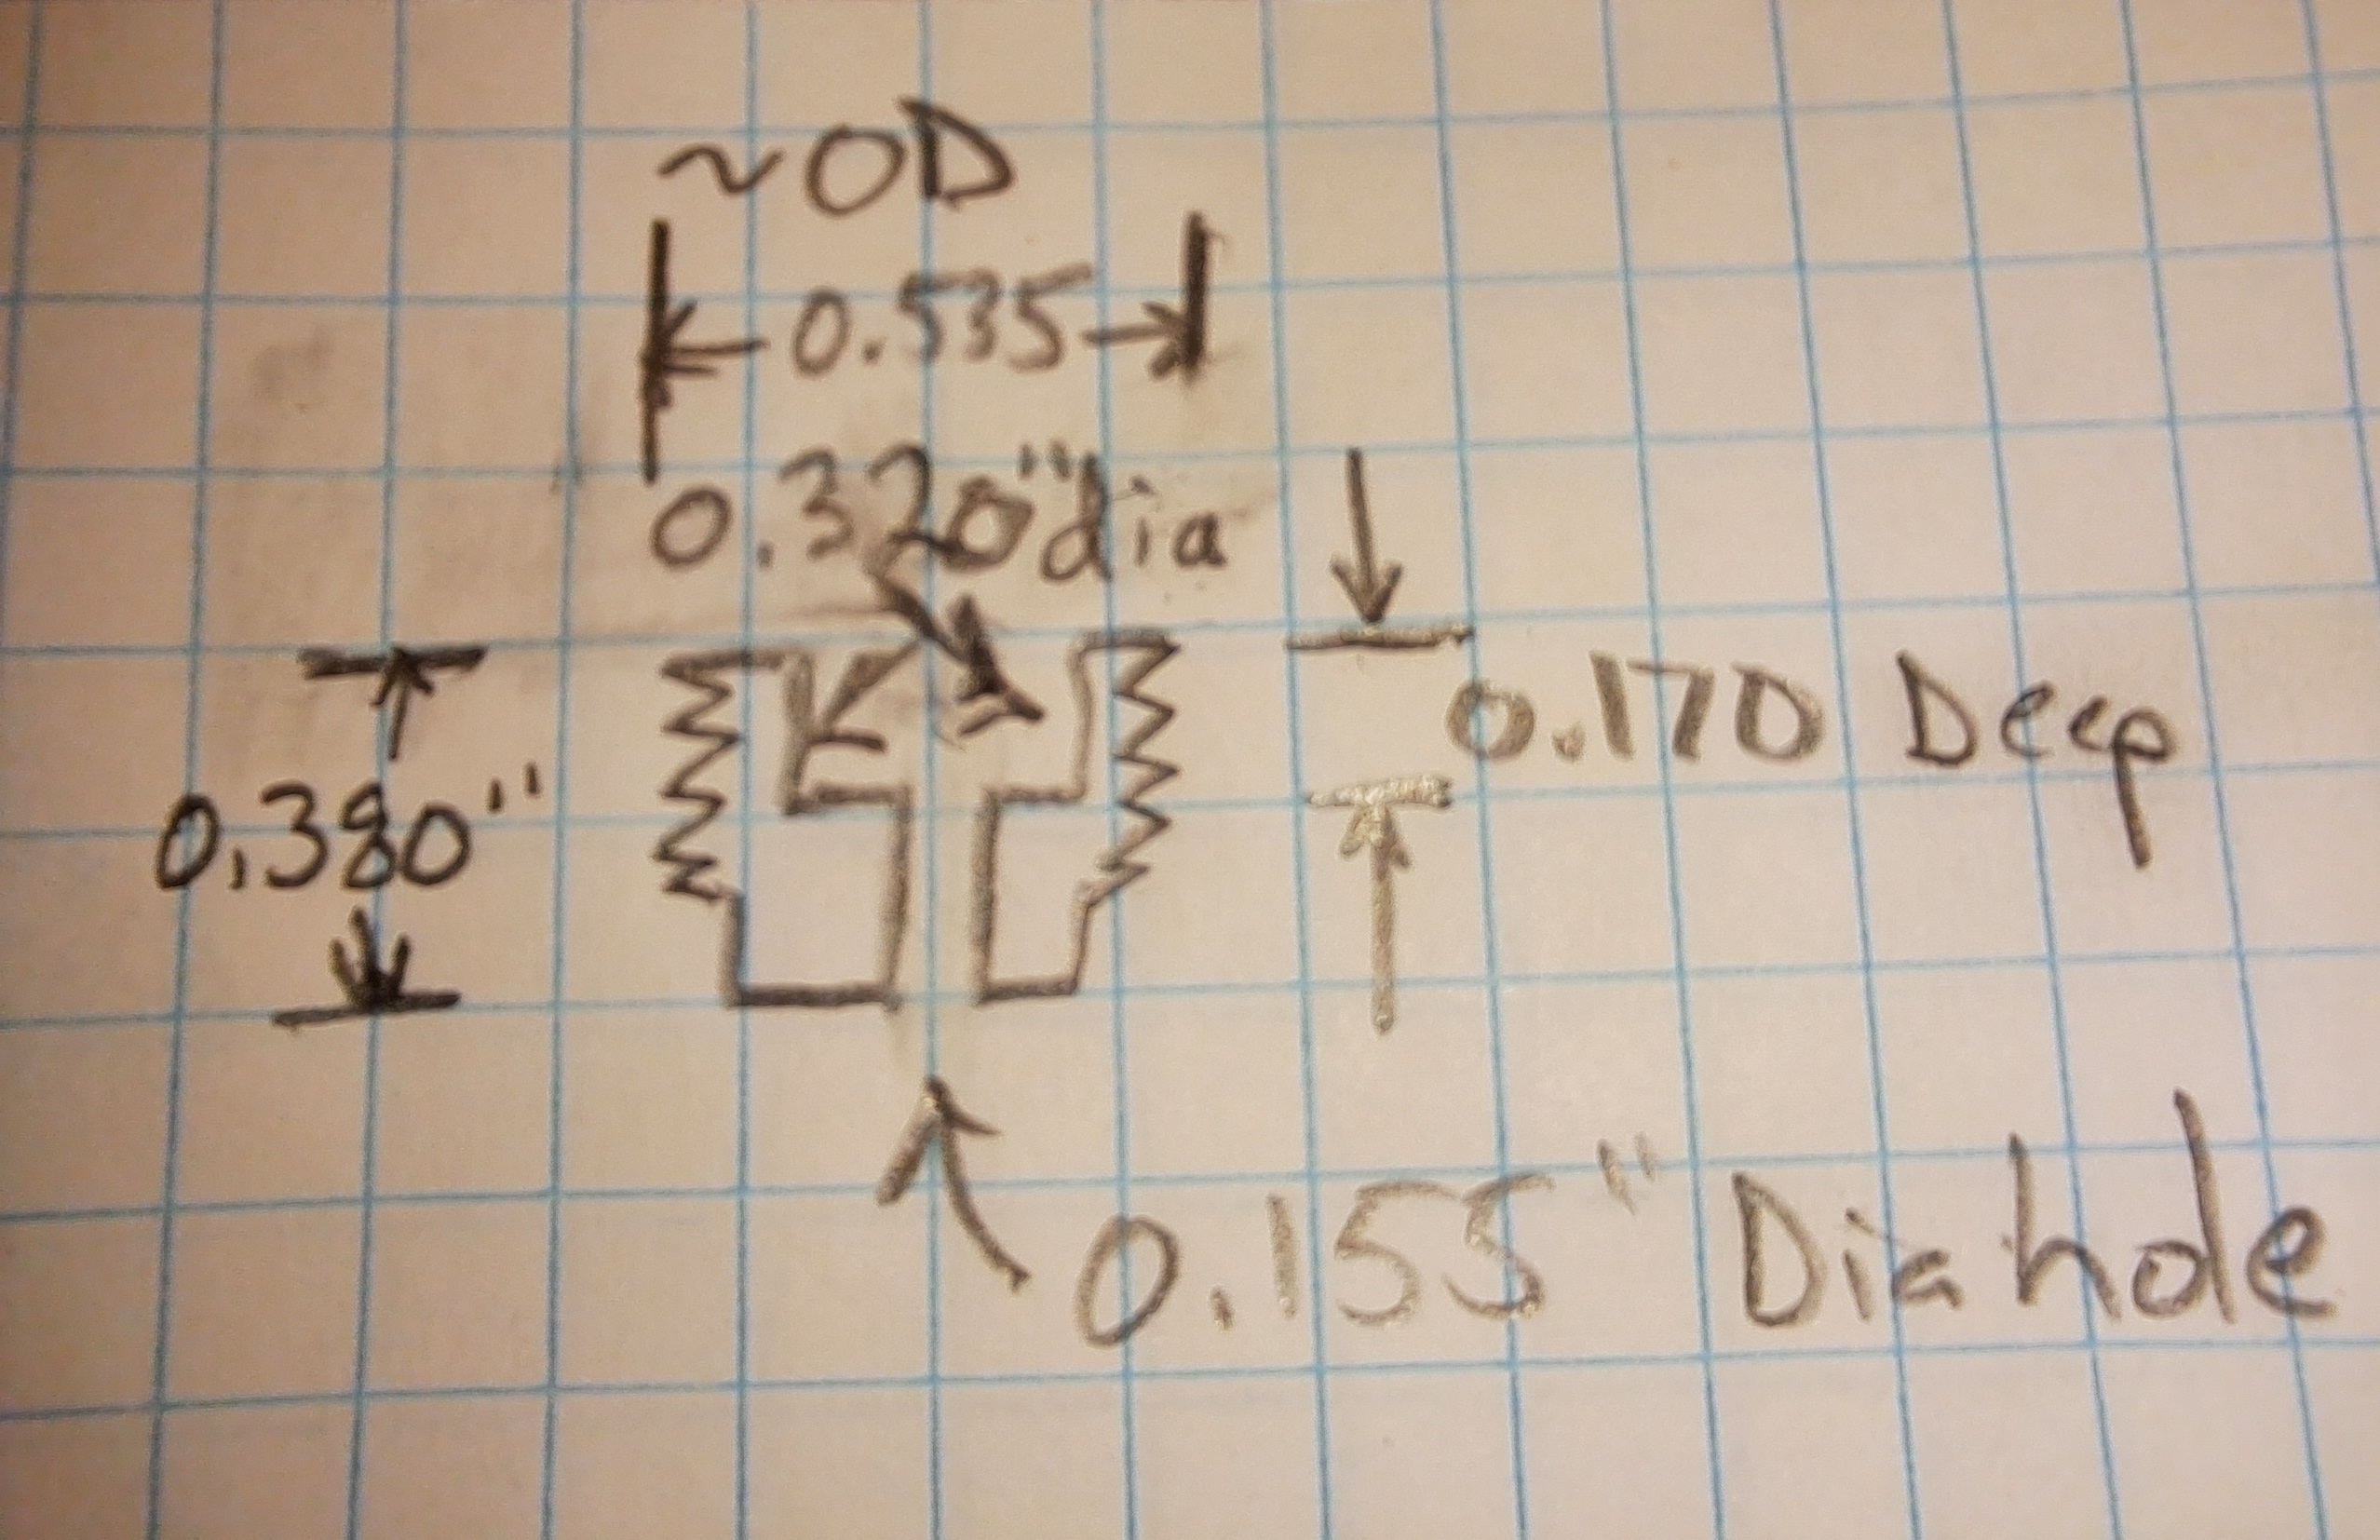 ~OD
0.535
0.320" dia
0.170 Deep
0.380"
0.155" Dia hole